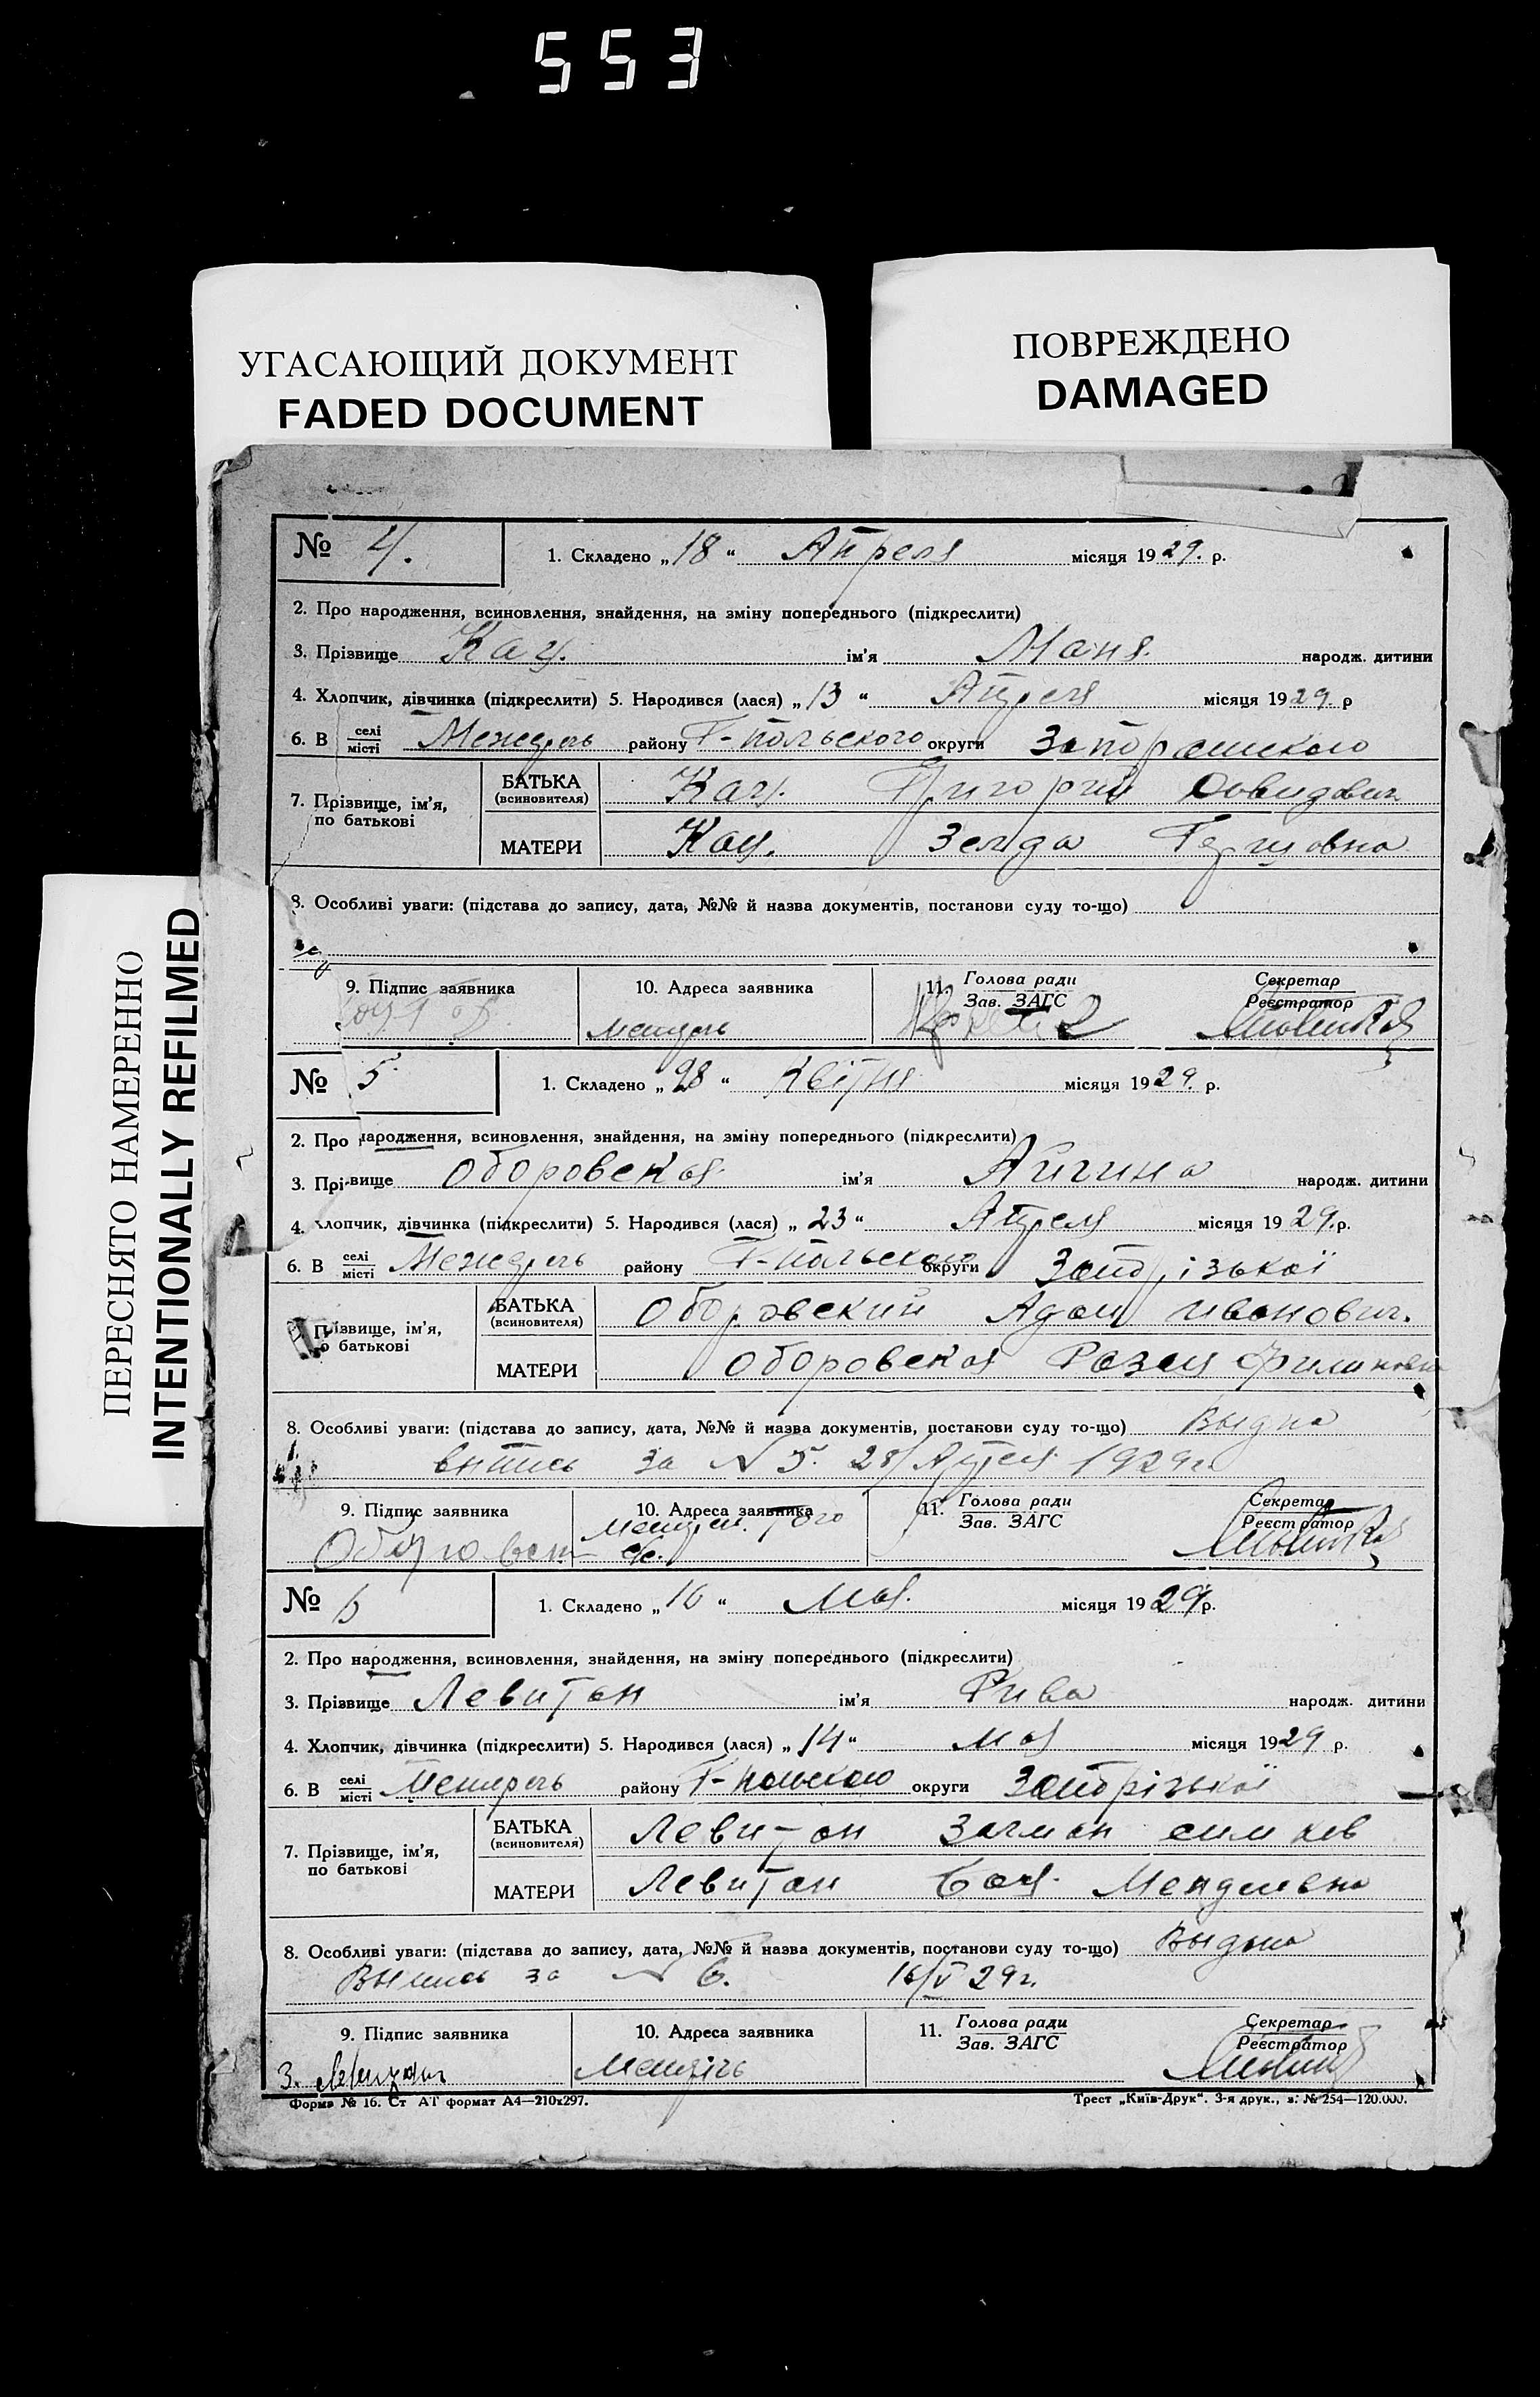 553
УГАСАЮЩИЙ ДОКУМЕНТ
FADED DOCUMENT
ПОВРЕЖДЕНО
DAMAGED
ПЕРЕСНЯТО НАМЕРЕННО
INTENTIONALLY REFILMED
№ 4.
1. Складено „18“ Апреля місяця 1929. р.
2. Про народження, всиновлення, знайдення, на зміну попереднього (підкреслити)
3. Прізвище Кац. ім'я Маня. народж. дитини
4. Хлопчик, дівчинка (підкреслити) 5. Народився (лася) „13“ Апреля місяця 1929. р
6. В селі місті Межеречь району Г-польского округи
7. Прізвище, ім'я, по батькові
БАТЬКА (всиновителя) Кац. Григорий Давидович
МАТЕРИ Кац. Зелда Герцовна
8. Особливі уваги: (підстава до запису, дата, №№ й назва документів, постанови суду то-що)
9. Підпис заявника 10. Адреса заявника 11. Голова ради Зав. ЗАГС Секретар Реєстратор
№ 5.
1. Складено „28“ Квітня місяця 1929. р.
2. Про народження, всиновлення, знайдення, на зміну попереднього (підкреслити)
3. Прі-вище Оборовская ім'я народж. дитини
4. хлопчик, дівчинка (підкреслити) 5. Народився (лася) „23“ Апреля місяця 1929. р.
6. В селі місті Межеречь району Г-польского округи Запорізької
Прізвище, ім'я, по батькові
БАТЬКА (всиновителя) Оборовский Адам Иванович.
МАТЕРИ Оборовская
8. Особливі уваги: (підстава до запису, дата, №№ й назва документів, постанови суду то-що) Выдна
выпись за N 5. 28/Апреля 1929г
9. Підпис заявника 10. Адреса заявника 11. Голова ради Зав. ЗАГС Секретар Реєстратор
№ 6
1. Складено „16“ Мая. місяця 1929. р.
2. Про народження, всиновлення, знайдення, на зміну попереднього (підкреслити)
3. Прізвище Левитан ім'я Рива народж. дитини
4. Хлопчик, дівчинка (підкреслити) 5. Народився (лася) „14“ Мая місяця 1929 р.
6. В селі місті Межеречь району Г-польского округи Запорізької
7. Прізвище, ім'я, по батькові
БАТЬКА (всиновителя) Левитан Залман
МАТЕРИ Левитан Бася. Менделевна
8. Особливі уваги: (підстава до запису, дата, №№ й назва документів, постанови суду то-що) Выдана
Выпись за N 6. 16/V 29г.
9. Підпис заявника 10. Адреса заявника 11. Голова ради Зав. ЗАГС Секретар Реєстратор
Форма № 16. Ст АТ формат А4—210х297.
Трест „Київ-Друк“. 3-я друк., з. № 254—120.000.